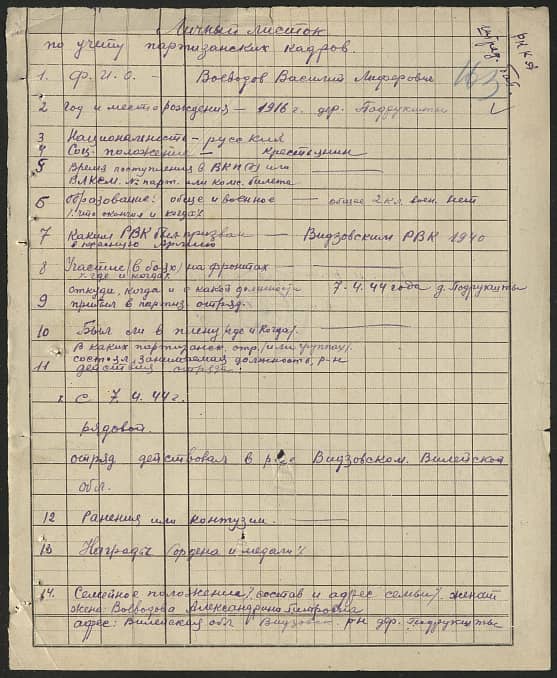 Личный листок
по учету партизанских кадров.
163
1. Ф.И.О. — Воеводов Василий
2 Год и место рождения — 1916 г. дер.
3 Национальность — русский
4 Соц. положение — крестьянин
5 Время поступления в ВКП(б) или
ВЛКСМ. № парт. или комс. билета
6 Образование: общее и военное — общее 2 кл. воен. нет
/что окончил и когда/
7 Каким РВК был призван — Видзовским РВК 1940
в Красную Армию
8 Участие (в боях) на фронтах
где и когда
откуда, когда и с какой должности 7.4.44 года д.
9 прибыл в партиз. отряд.
10 Был ли в плену /где и когда/.
В каких партизанск. отр. /или группах/.
состоял, занимаемая должность, р-н
11 действия отряда:
с 7.4.44 г.
рядовой.
отряд действовал в Видзовском. Вилейской
обл.
12 Ранения или контузии.
13 Награды /ордена и медали/
14. Семейное положение /состав и адрес семьи/. женат
жена: Воеводова Александрина Петровна
адрес: Вилейская обл Видзовск. р-н дер.